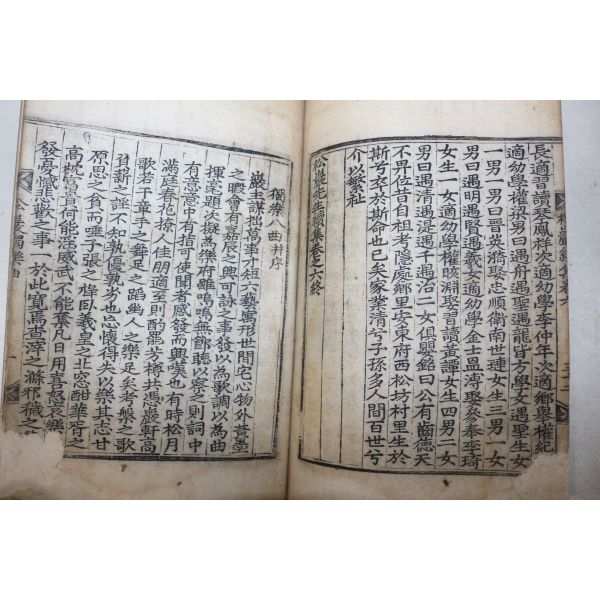 長適習讀琴鳳祥次適幼學李仲年次適鄉擧權紀
適幼學權深男曰遇舟遇聖遇龍皆方學女遇聖生女
一男一男曰晉英猶娶忠順衛南世璉女生三男一女
男曰遇明遇賢遇義女適幼學金士溫淳娶參奉李琦
女生一女適幼學權晐淵娶習讀黃譚女生四男二女
男曰遇清遇湜遇千遇治二女俱嬰銘曰公有齒德天
不畀位吉自祖考隱處鄉里安東府西松坊村里生於
斯兮卒於斯命也已矣家業清兮子孫多人間百世兮
介以繁祉
松巖先生續集卷之六終
獨樂八曲幷序
巖主謀拙萬事才短六藝寓形世間宅心物外書墨
之暇會有嘉辰之興可詠之事發以爲歌調以爲曲
揮毫題次擬爲樂府雖嗚嗚無節聽以察之則詞中
有意意中有指可使聞者感發而興嘆也有時松月
滿庭春花撩人佳朋適至則酌罷芳樽共憑巖軒高
歌若干章手之舞足之蹈幽人之樂足矣考槃之歌
負薪之謠不知孰優孰劣也忘懷得失以樂其志甘
原思之貧而唾子張之 臥羲皇之北窓酣華胥之
高枕富貴何能淫威武不能奪凡日用喜怒哀樂
發憂憾悲歡之事一於此寬焉查滓之滌邪穢之